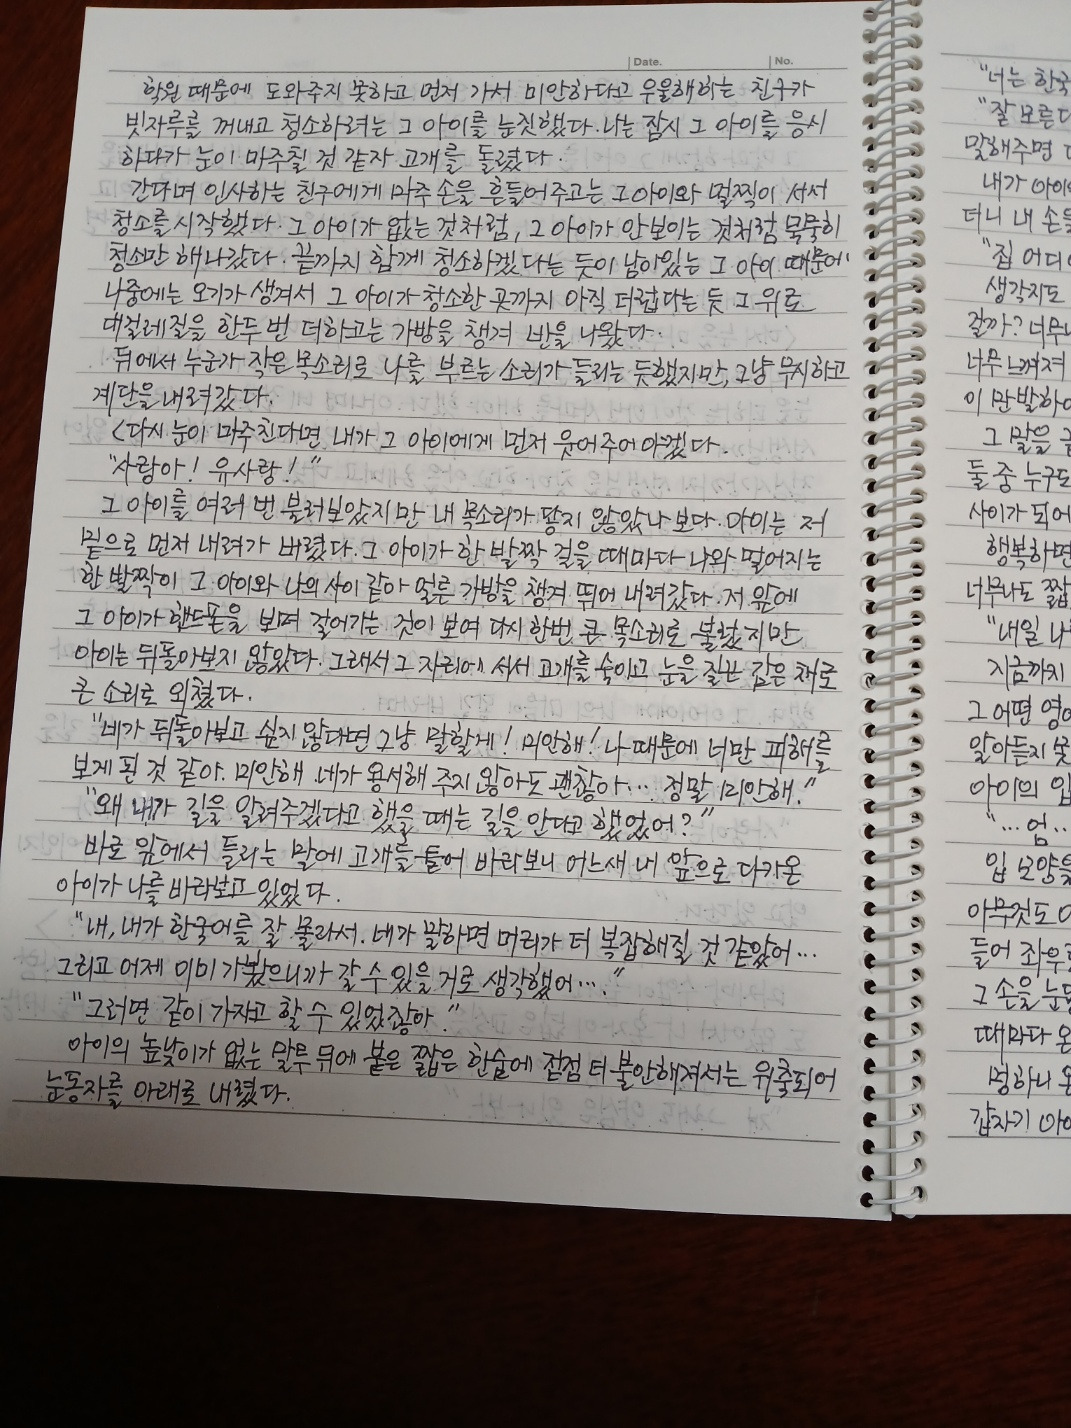 Date. No.
학원 때문에 도와주지 못하고 먼저 가서 미안하다고 우울해하는 친구가
빗자루를 꺼내고 청소하려는 그 아이를 눈짓했다. 나는 잠시 그 아이를 응시
하다가 눈이 마주칠 것 같자 고개를 돌렸다.
간다며 인사하는 친구에게 마주 손을 흔들어주고는 그 아이와 멀찍이 서서
청소를 시작했다. 그 아이가 없는 것처럼, 그 아이가 안 보이는 것처럼 묵묵히
청소만 해나갔다. 끝까지 함께 청소하겠다는 듯이 남아있는 그 아이 때문에
나중에는 오기가 생겨서 그 아이가 청소한 곳까지 아직 더럽다는 듯 그 위로
대걸레질을 한두 번 더하고는 가방을 챙겨 반을 나왔다.
뒤에서 누군가 작은 목소리로 나를 부르는 소리가 들리는 듯했지만, 그냥 무시하고
계단을 내려갔다.
<다시 눈이 마주친다면 내가 그 아이에게 먼저 웃어주어야겠다.
"사랑아! 유사랑!"
그 아이를 여러 번 불러보았지만 내 목소리가 닿지 않았나 보다. 아이는 저
밑으로 먼저 내려가 버렸다. 그 아이가 한 발짝 걸을 때마다 나와 떨어지는
한 발짝이 그 아이와 나의 사이 같아 얼른 가방을 챙겨 뛰어 내려갔다. 저 앞에
그 아이가 핸드폰을 보며 걸어가는 것이 보여 다시 한번 큰 목소리로 불렀지만
아이는 뒤돌아보지 않았다. 그래서 그 자리에 서서 고개를 숙이고 눈을 질끈 감은 채로
큰 소리로 외쳤다.
"네가 뒤돌아보고 싶지 않다면 그냥 말할게! 미안해! 나 때문에 너만 피해를
보게 된 것 같아. 미안해 네가 용서해 주지 않아도 괜찮아… 정말 미안해."
"왜 내가 길을 알려주겠다고 했을 때는 길을 안다고 했었어?"
바로 앞에서 들리는 말에 고개를 들어 바라보니 어느새 내 앞으로 다가온
아이가 나를 바라보고 있었다.
"내, 내가 한국어를 잘 몰라서. 네가 말하면 머리가 더 복잡해질 것 같았어…
그리고 어제 이미 가봤으니까 갈 수 있을 거로 생각했어…."
"그러면 같이 가자고 할 수 있었잖아."
아이의 높낮이가 없는 말투 뒤에 붙은 짧은 한숨에 점점 더 불안해져서는 위축되어
눈동자를 아래로 내렸다.
"너는 한국
"잘 모른다
말해주면
내가 아이
더니 내 손을
"집 어디
생각지도
걸까? 너무나
너무 느껴져
이 만발하여
그 말을
둘 중 누구도
사이가 되어
행복하면
너무나도 짧
"내일 나
지금까지
그 어떤 영어
알아듣지 못
아이의 입
"…엄…
입 모양을
아무것도
들어 좌우로
그 손을 눈
때마다 온
멍하니
갑자기 아이